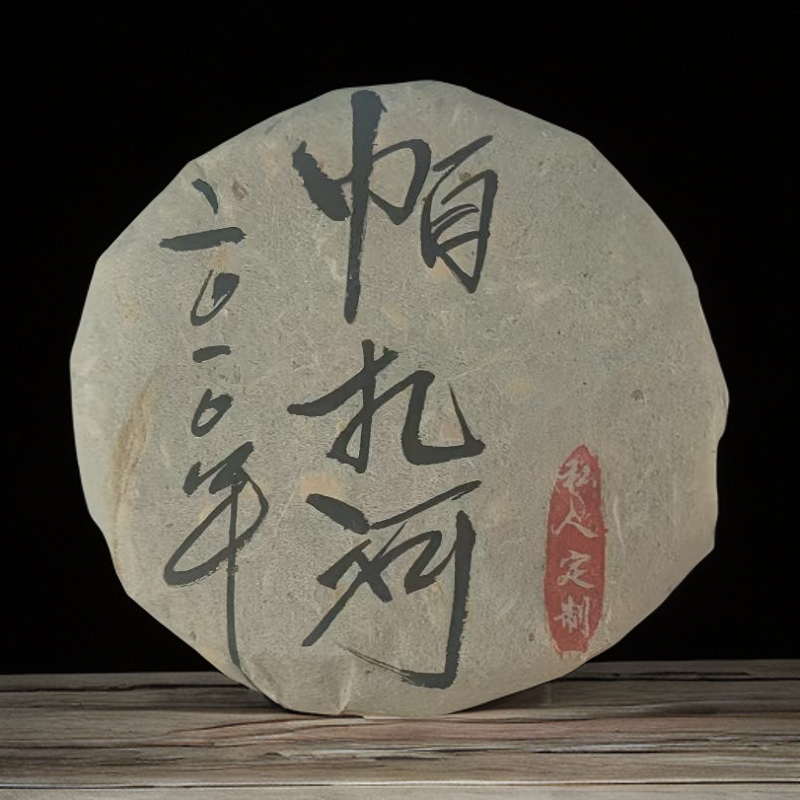 帕扎河
二〇一〇年
私人定制